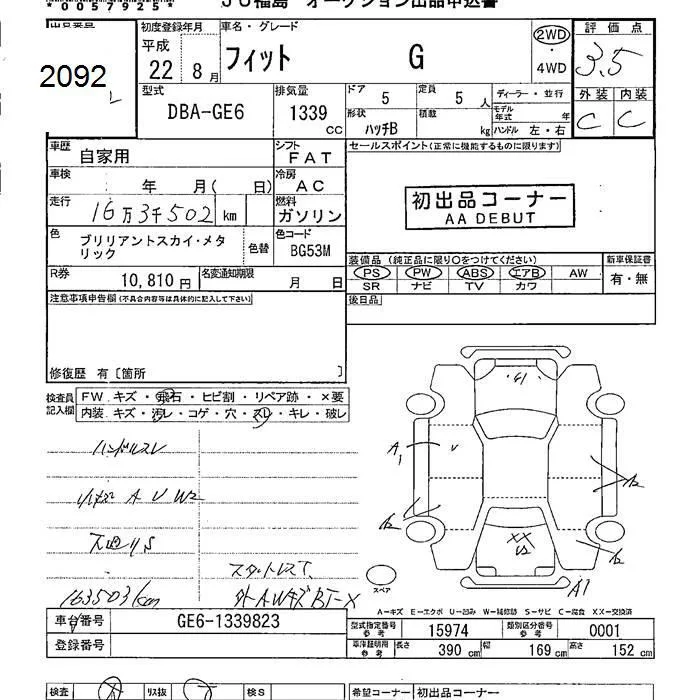 *0057925*
JU福島 オークション出品申込書
出品番号 初度登録年月 車名・グレード 評価点
2092 平成 22 8月 フィット G 2WD ・ 4WD 3.5
型式 DBA-GE6 排気量 1339 CC ドア 5 定員 5 人 ディーラー・並行 外装 内装
形状 ハッチB 積載 kg モデル年式 年 ハンドル 左・右 C C
車歴 自家用 シフト FAT セールスポイント(正常に機能するものに限ります)
車検 年 月( 日) 冷房 AC
初出品コーナー
AA DEBUT
走行 16万3千502 km 燃料 ガソリン
色 ブリリアントスカイ・メタリック 色替 色コード BG53M
装備品(純正品に限り○をつけてください) 新車保証書
R券 10,810円 名変通知期限 月 日 PS PW ABS エアB AW 有・無
SR ナビ TV カワ
注意事項申告欄(不具合内容等は具体的に記入して下さい) 後日品
修復歴 有〔箇所 〕
検査員記入欄 FW キズ・飛石・ヒビ割・リペア跡・×要
内装 キズ・汚レ・コゲ・穴・スレ・キレ・破レ
ハンドルスレ
A U W2
S
スタットレスT
163503km 外AWキズ BT-X
スペア
A1
A1
A―キズ E―エクボ U―凹み W―補修跡 S―サビ C―腐食 XX―交換済
車台番号 GE6-1339823 型式指定番号 参考 15974 類別区分番号 参考 0001
登録番号 車庫証明用 参考 長さ 390 cm 幅 169 cm 高さ 152 cm
検査 リス抜 検S 希望コーナー 初出品コーナー